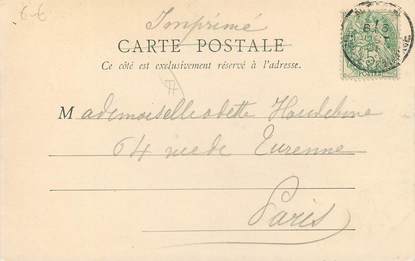 6-6
Imprimé
CARTE POSTALE
Ce côté est exclusivement réservé à l'adresse.
Mademoiselle odette Houdebine
64 rue de Turenne
Paris